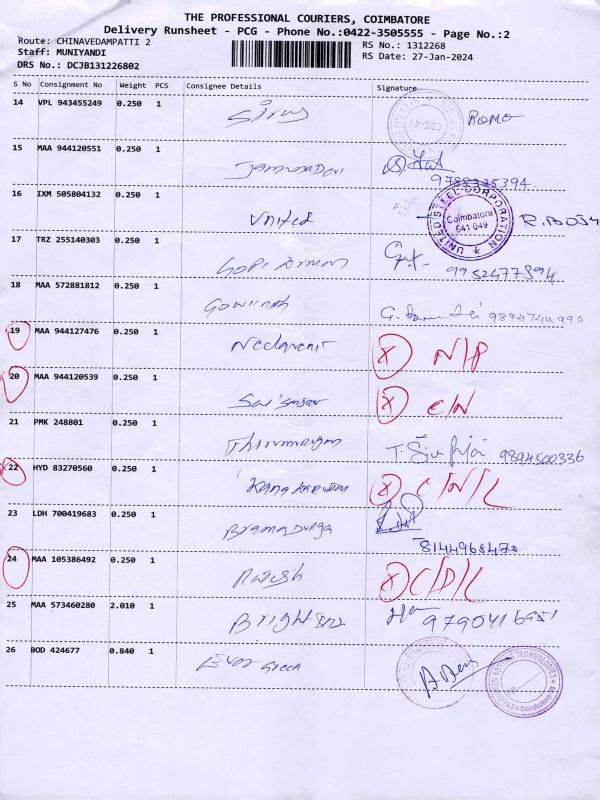 THE PROFESSIONAL COURIERS, COIMBATORE
Delivery Runsheet - PCG - Phone No.:0422-3505555 - Page No.:2
Route: CHINAVEDAMPATTI 2
RS No.: 1312268
Staff: MUNIYANDI
RS Date: 27-Jan-2024
DRS No.: DCJB131226802
S No Consignment No Weight PCS Consignee Details Signature
14 VPL 943455249 0.250 1
15 MAA 944120551 0.250 1
9788325394
16 IXM 505804132 0.250 1 United
UNITED STEEL CORPORATION
Coimbatore
641 049
17 TRZ 255140303 0.250 1 Gopi Kannan
9952477894
18 MAA 572881812 0.250 1
9894744990
19 MAA 944127476 0.250 1 X N/P
20 MAA 944120539 0.250 1 X C/N
21 PMK 248801 0.250 1 9894500336
22 HYD 83270560 0.250 1 X C/N/L
23 LDH 700419683 0.250 1 Brama Durga
8144968470
24 MAA 105386492 0.250 1 Rajesh X C/D/L
25 MAA 573460280 2.010 1 9790416951
26 BOD 424677 0.840 1 Ever Green